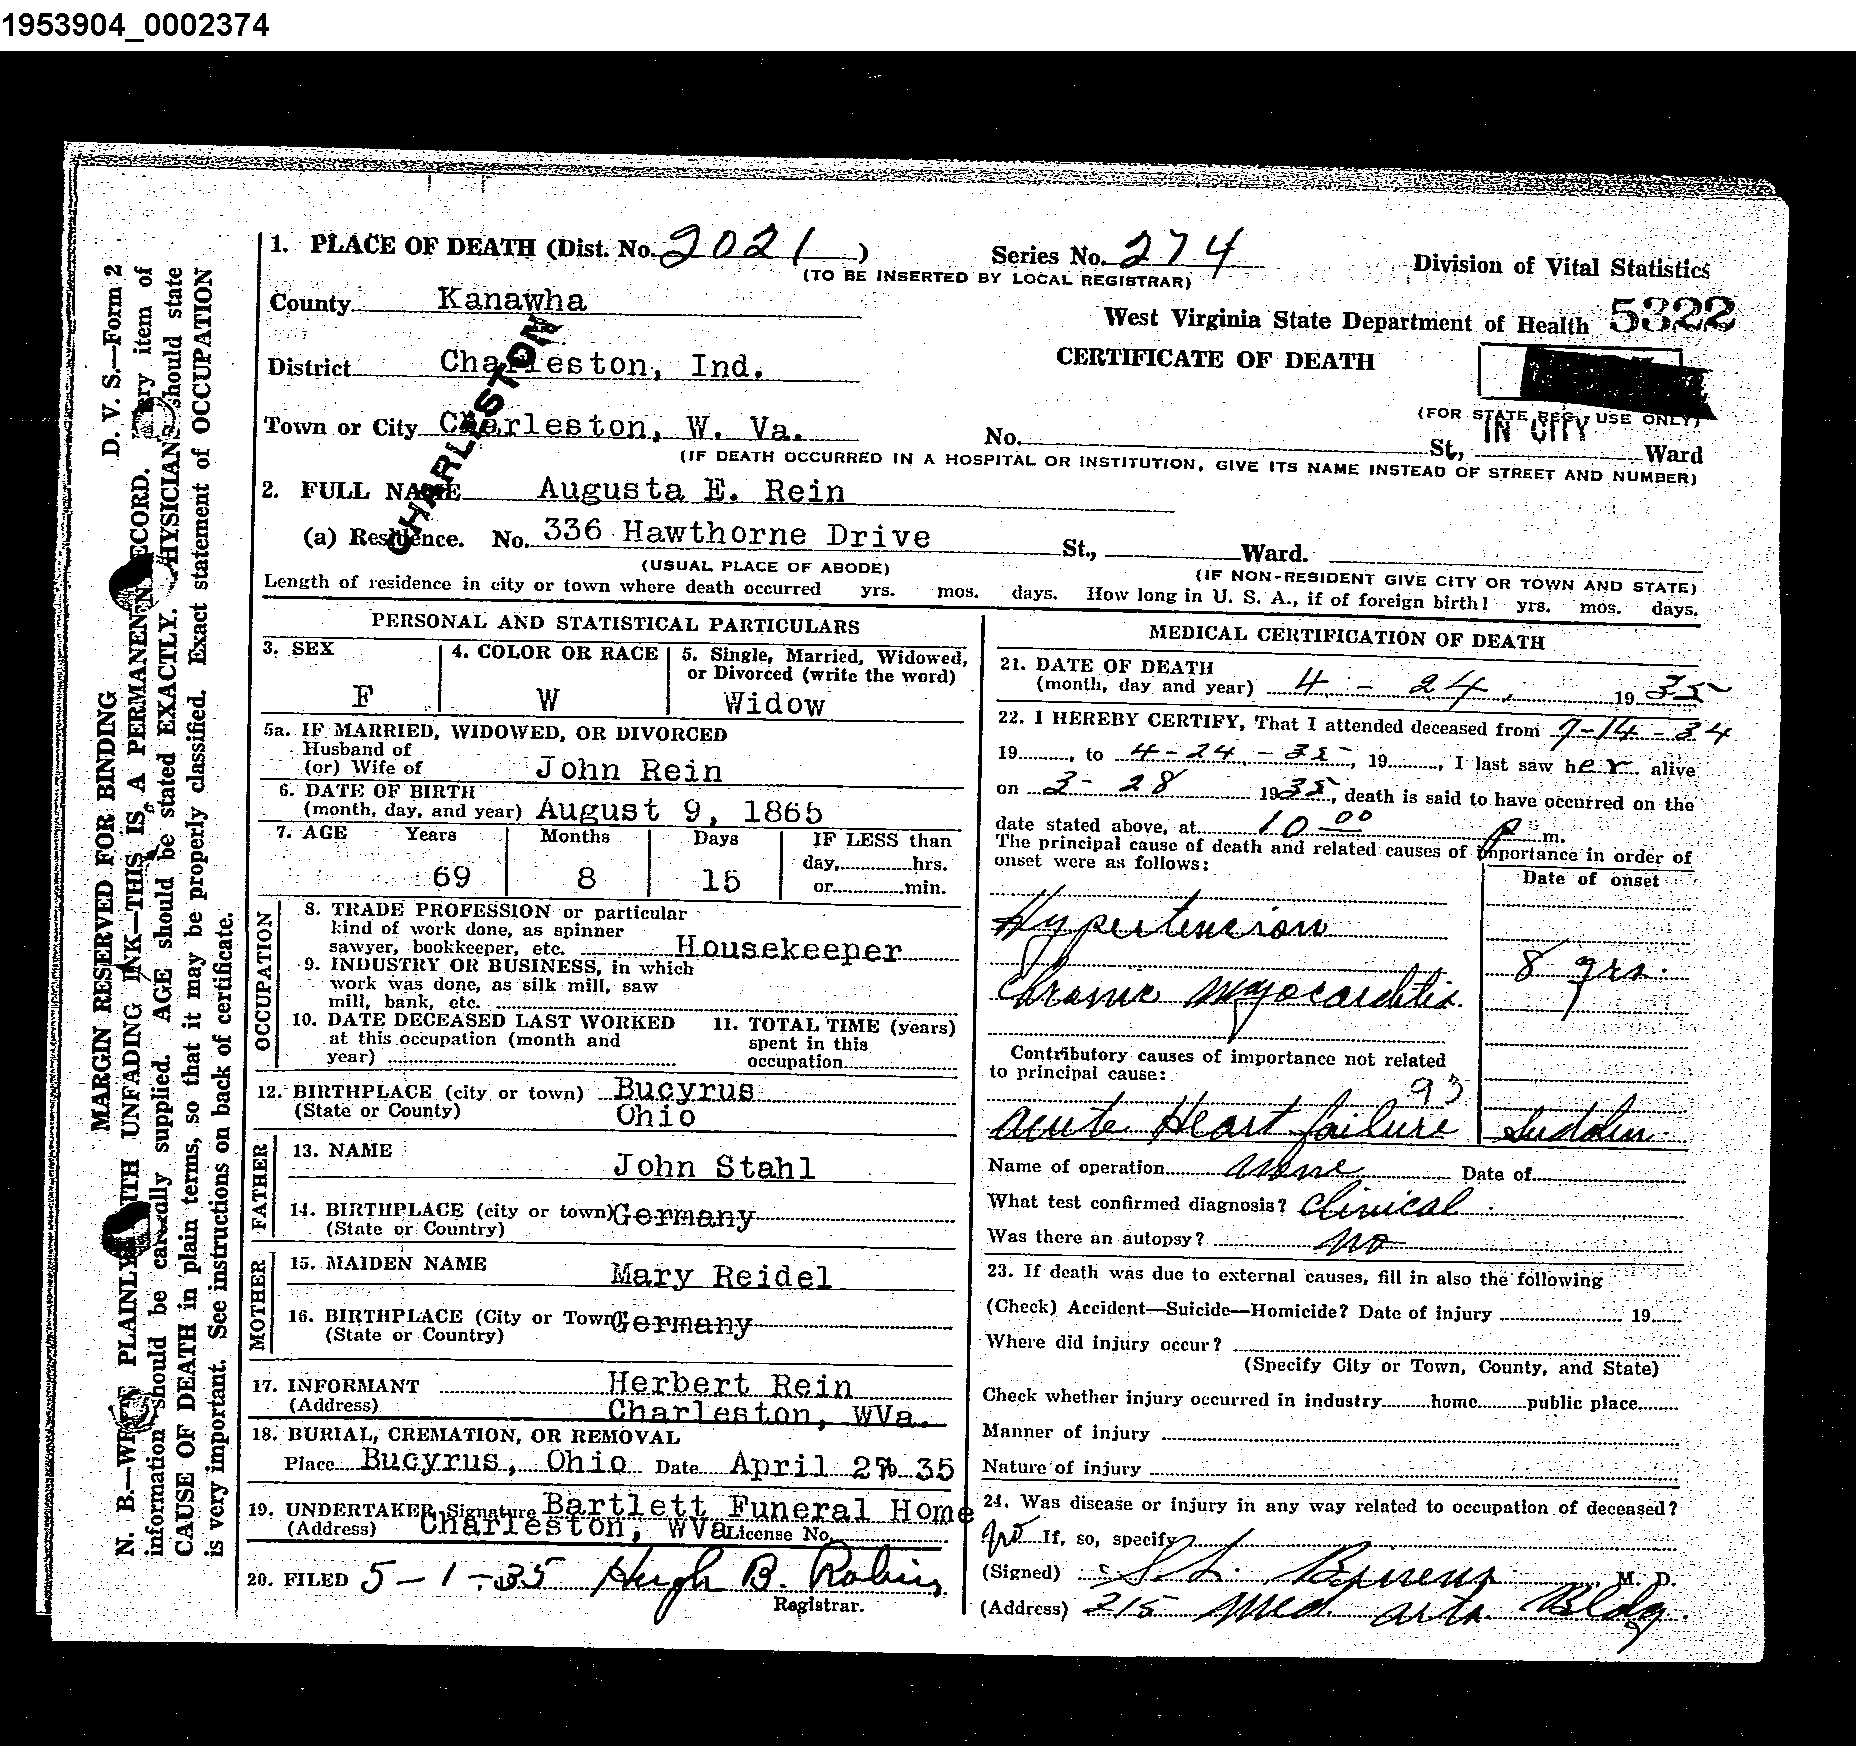 1953904_0002374
1. PLACE OF DEATH (Dist. No. 2021 ) Series No. 274 Division of Vital Statistics
(TO BE INSERTED BY LOCAL REGISTRAR)
County Kanawha West Virginia State Department of Health 5322
District Charleston, Ind. CERTIFICATE OF DEATH
CHARLESTON
(FOR STATE REG. USE ONLY)
IN CITY
Town or City Charleston, W. Va. No. St., Ward
(IF DEATH OCCURRED IN A HOSPITAL OR INSTITUTION, GIVE ITS NAME INSTEAD OF STREET AND NUMBER)
2. FULL NAME Augusta E. Rein
(a) Residence. No. 336 Hawthorne Drive St., Ward.
(USUAL PLACE OF ABODE) (IF NON-RESIDENT GIVE CITY OR TOWN AND STATE)
Length of residence in city or town where death occurred yrs. mos. days. How long in U. S. A., if of foreign birth? yrs. mos. days.
PERSONAL AND STATISTICAL PARTICULARS
3. SEX 4. COLOR OR RACE 5. Single, Married, Widowed,
or Divorced (write the word)
F W Widow
5a. IF MARRIED, WIDOWED, OR DIVORCED
Husband of
(or) Wife of John Rein
6. DATE OF BIRTH
(month, day, and year) August 9, 1865
7. AGE Years Months Days IF LESS than
day, hrs.
69 8 15 or min.
OCCUPATION
8. TRADE PROFESSION or particular
kind of work done, as spinner
sawyer, bookkeeper, etc. Housekeeper
9. INDUSTRY OR BUSINESS, in which
work was done, as silk mill, saw
mill, bank, etc.
10. DATE DECEASED LAST WORKED 11. TOTAL TIME (years)
at this occupation (month and spent in this
year) occupation
12. BIRTHPLACE (city or town) Bucyrus
(State or County) Ohio
FATHER
13. NAME John Stahl
14. BIRTHPLACE (city or town) Germany
(State or Country)
MOTHER
15. MAIDEN NAME Mary Reidel
16. BIRTHPLACE (City or Town) Germany
(State or Country)
17. INFORMANT Herbert Rein
(Address) Charleston, WVa.
18. BURIAL, CREMATION, OR REMOVAL
Place Bucyrus, Ohio Date April 27 35
19. UNDERTAKER Signature Bartlett Funeral Home
(Address) Charleston, WVa License No.
20. FILED 5-1-35 Hugh B. Robins
Registrar.
MEDICAL CERTIFICATION OF DEATH
21. DATE OF DEATH
(month, day and year) 4 - 24, 19 35
22. I HEREBY CERTIFY, That I attended deceased from 7-14-34
19 , to 4-24-35, 19 , I last saw her alive
on 3- 28 1935, death is said to have occurred on the
date stated above, at 10 00 P m.
The principal cause of death and related causes of importance in order of
onset were as follows: Date of onset
Hypertencion
8 yrs.
Chronic Myocarditis.
Contributory causes of importance not related
to principal cause:
93
Acute Heart failure Sudden
Name of operation none Date of
What test confirmed diagnosis? Clinical
Was there an autopsy? no
23. If death was due to external causes, fill in also the following
(Check) Accident—Suicide—Homicide? Date of injury 19
Where did injury occur?
(Specify City or Town, County, and State)
Check whether injury occurred in industry home public place
Manner of injury
Nature of injury
24. Was disease or injury in any way related to occupation of deceased?
no If, so, specify
(Signed) S. L. M. D.
(Address) 215 Med. Arts. Bldg.
D. V. S.—Form 2
MARGIN RESERVED FOR BINDING
N. B.—WRITE PLAINLY WITH UNFADING INK—THIS IS A PERMANENT RECORD. Every item of
information should be carefully supplied. AGE should be stated EXACTLY. PHYSICIANS should state
CAUSE OF DEATH in plain terms, so that it may be properly classified. Exact statement of OCCUPATION
is very important. See instructions on back of certificate.